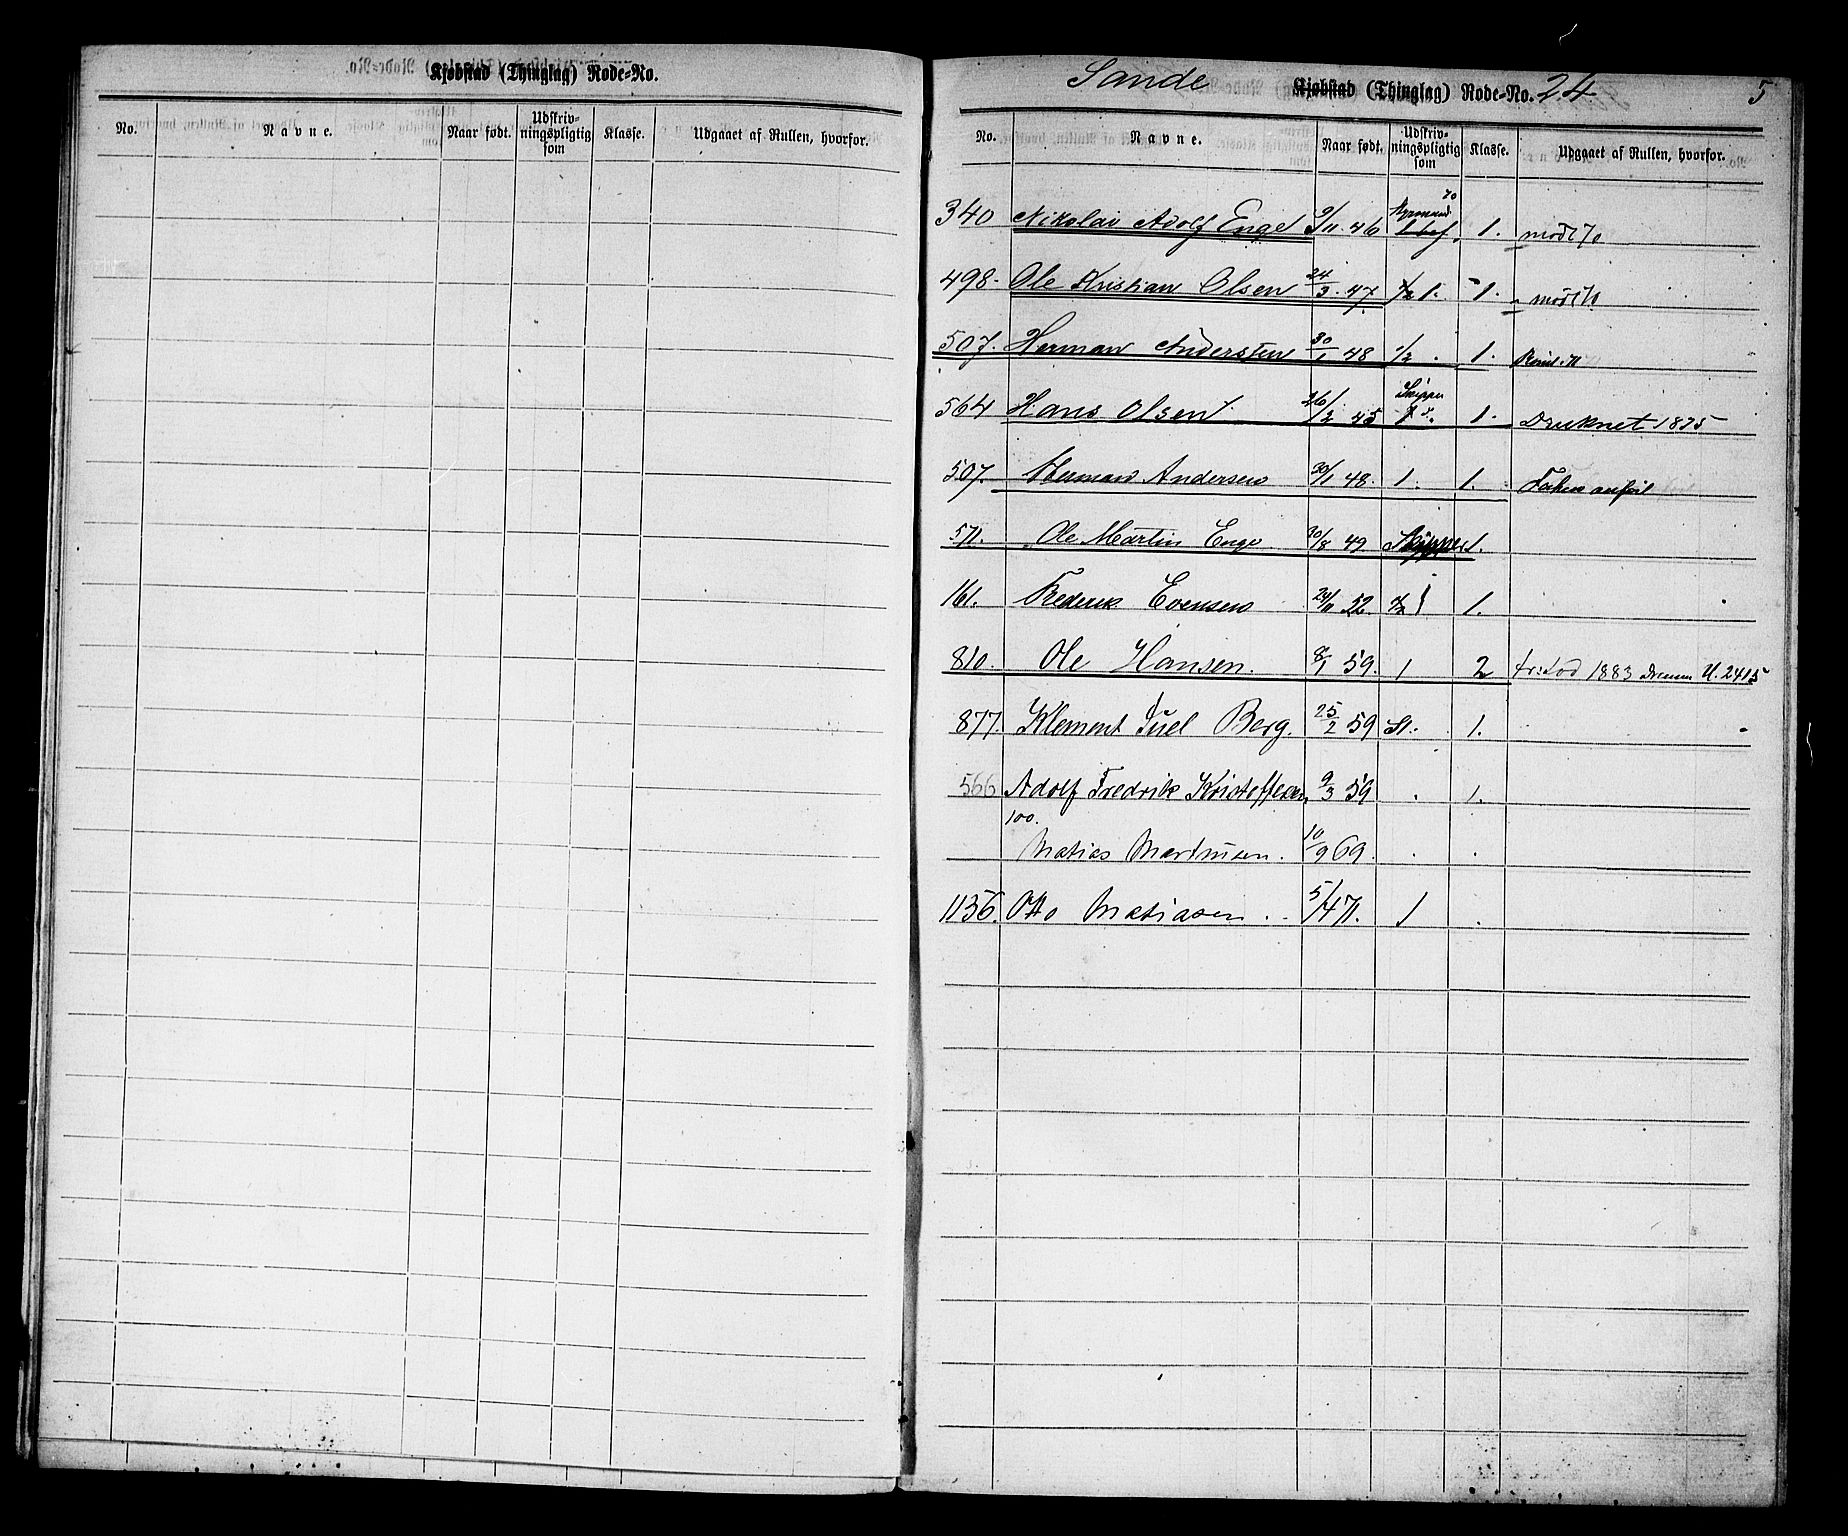 Kjøbstad (Thinglag) Rode-No.
No. Navne. Naar født. Udskriv-ningspligtig som Klasse. Udgaaet af Rullen, hvorfor.
Sande Kjøbstad (Thinglag) Rode-No. 24 5
No. Navne. Naar født. Udskriv-ningspligtig som Klasse. Udgaaet af Rullen, hvorfor.
340 Nikolai Adolf Engel 9/11 46 70 1.
498. Ole Kristian Olsen 24/3 47 1/2 1. 1.
507. Herman Anderssen 30/1 48 1/2 1.
564 Hans Olsen 26/2 45 1. Druknet 1875
507. Herman Andersen 30/1 48. 1. 1.
571. Ole Martin Enge 30/8 49. Skipper 1.
161. Frederik Evensen 24/11 52. 1/2 1.
810. Ole Hansen. 8/1 59. 1 2 fr: Lod 1883 U. 2415
877. Klement Juel Berg. 25/2 59 St. 1.
566 Adolf Fredrik Kristoffersen 9/3 59 1.
100.
Matias Martinsen. 10/9 69.
1136. Otto Matiasen 5/4 71. 1